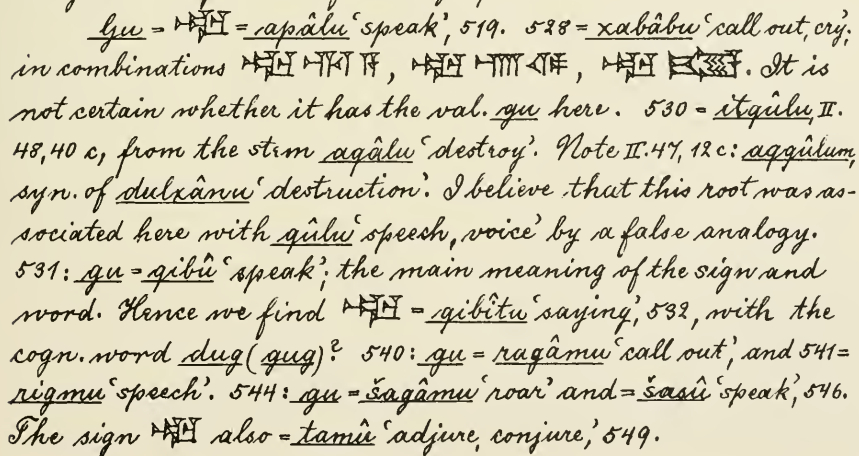 Gu = 𒅗 = apâlu ‘speak’, 519. 528 = xabâbu ‘call out, cry’.
in combinations 𒅗, 𒅗, 𒅗. It is
not certain whether it has the val. gu here. 530 = itqûlu, II.
48, 40 c, from the stem aqâlu ‘destroy’. Note II. 47, 12 c: aqqûlum,
syn. of dulxânu ‘destruction’. I believe that this root was as-
sociated here with qûlu ‘speech, voice’ by a false analogy.
531: gu = qibû ‘speak’; the main meaning of the sign and
word. Hence we find 𒅗 = qibîtu ‘saying’, 532, with the
cogn. word dug (gug)? 540: gu = ragâmu ‘call out’, and 541 =
rigmu ‘speech’. 544: gu = šagâmu ‘roar’ and = šasû ‘speak’, 546.
The sign 𒅗 also = tamû ‘adjure, conjure,’ 549.